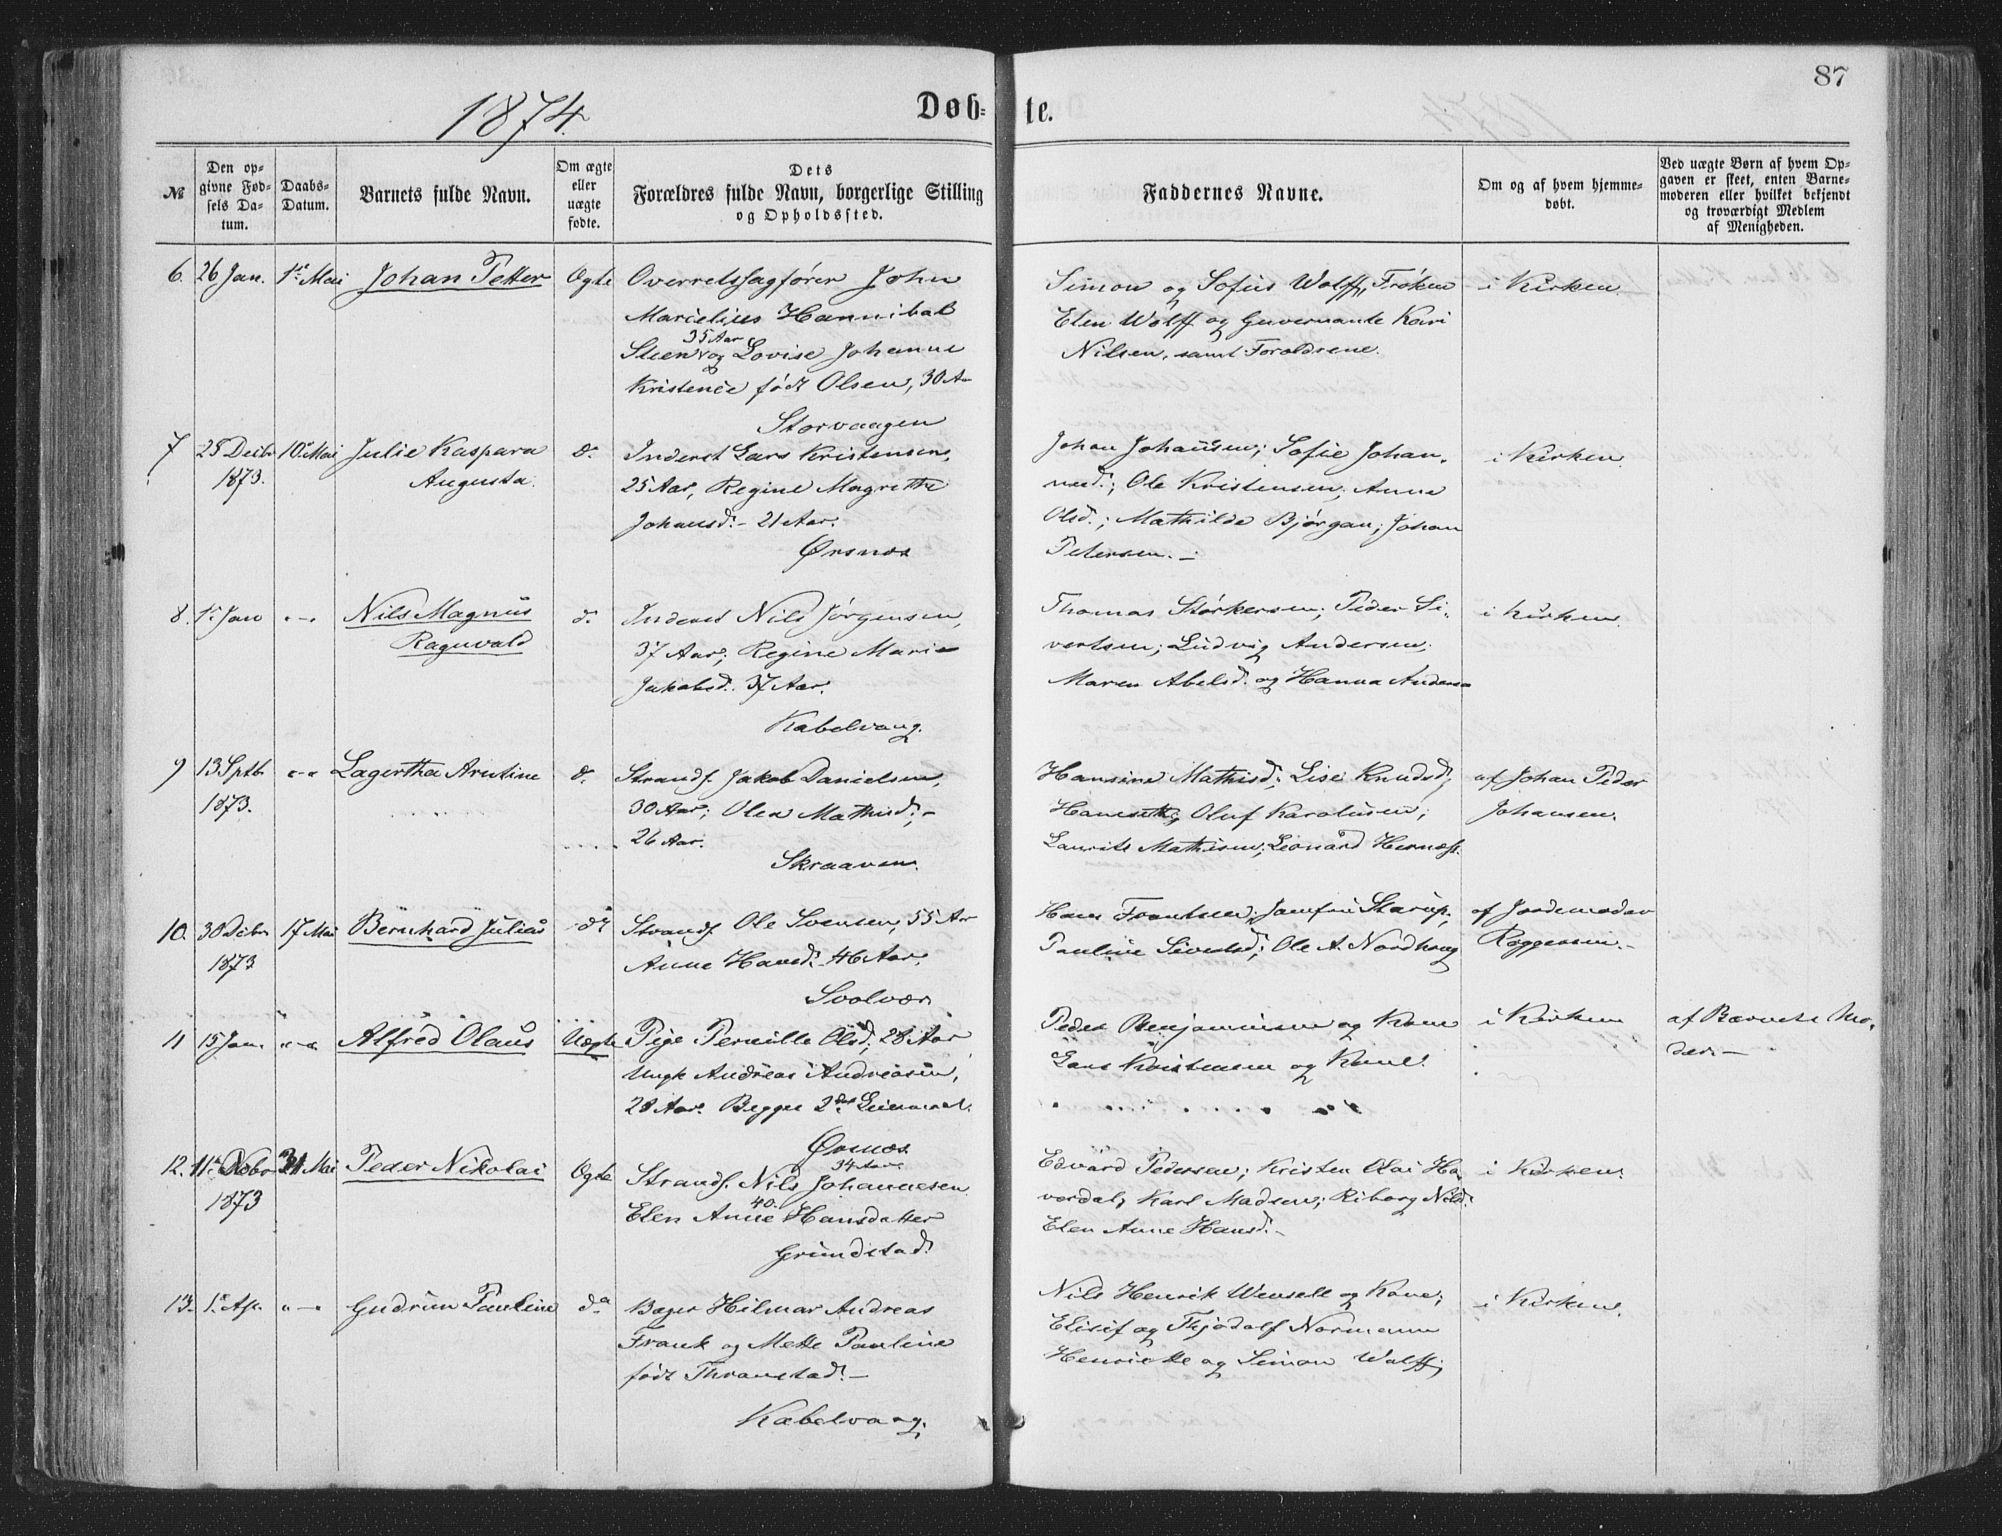 87
1874.
Døb=te.
№
Den opgivne Fødsels Datum.
Daabs-Datum.
Barnets fulde Navn.
Om ægte eller uægte fødte.
Dets Forældres fulde Navn, borgerlige Stilling og Opholdssted.
Faddernes Navne.
Om og af hvem hjemmedøbt.
Ved uægte Børn af hvem Opgaven er skeet, enten Barnemoderen eller hvilket bekjendt og troværdigt Medlem af Menigheden.
6. 26 Jan. 1ste Mai Johan Petter Ægte
Overretssagfører John
Marcelius Hannibal
35 Aar
Steen og Lovise Johanne
Kristence født Olsen, 30 A
Storvaagen
Simon og Sofus Wolff, Frøken
Elen Wolff og Guvernante Kari
Nilsen, samt Forældrene.
i Kirken.
7 28 Decbr 10. Mai Julie Kaspara do
1873. Augusta.
Inderst Lars Kristensen,
25 Aar, Regine Magrethe
Johansd. - 21 Aar.
Ørsnæs
Johan Johansen; Sofie Johan-
nesd.; Ole Kristensen; Anna
Olsd.; Mathilde Bjørgan; Johan
Petersen. -
i Kirken.
8. 1. Jan " - " Nils Magnus d.
Ragnvald
Inderst Nils Jørgensen,
37 Aar; Regine Marie
Jakobsd. 37 Aar.
Kabelvaag.
Thomas Størkersen; Peder Si-
vertsen; Ludvig Andersen;
Maren Abelsd. og Hanna Anders
i Kirken.
9 13 Sptb " - " Lagertha Arntine d.
1873.
Strands. Jakob Danielsen,
30 Aar; Olea Mathisd.; -
26 Aar.
Skraaven.
Hansine Mathisd.; Lise Knudsd.;
Oluf Karolusen;
Laurits Mathisen; Leonard Hernæs.
af Johan Peder
Johansen.
10. 30 Decbr 17 Mai Bernhard Julius do
1873
Strands. Ole Svensen, 55 Aar
Anne Hansd. 46 Aar.
Svolvær
Hans Frantsen; Jomfru Starup;
Pauline Sivertsd.; Ole A. Nordhaug
af Jordemoder
Roggensen. -
11 15 Jan. " - " Alfred Olaus Uægte
Pige Pernille Olsd.; 28 Aar
Ungk Andreas Andreasen,
28 Aar. Begges 2det Leiermaal.
Ørsnæs
Peder Benjaminsen og Kone
Lars Kristensen og Kone.
i Kirken
af Barnets Mo-
der. -
12. 11te Novbr 31 Mai Peder Nikolai Ægte
1873
34 Aar
Strands. Nils Johannesen
40.
Elen Anne Hansdatter
Grundstad.
Edvard Pedersen; Kristen Olai Ha-
verdal; Karl Madsen; Riborg Nilsd.
Elen Anne Hansd. -
i Kirken.
13. 1. Ap. " - " Gudrun Pauline do
Bager Hilmar Andreas
Frank og Mette Pauline
født Thranstad. -
Kabelvaag.
Nils Henrik Wensell og Kone;
Elisif og Thjodolf Normann
Henriette og Simon Wolff;
i Kirken.